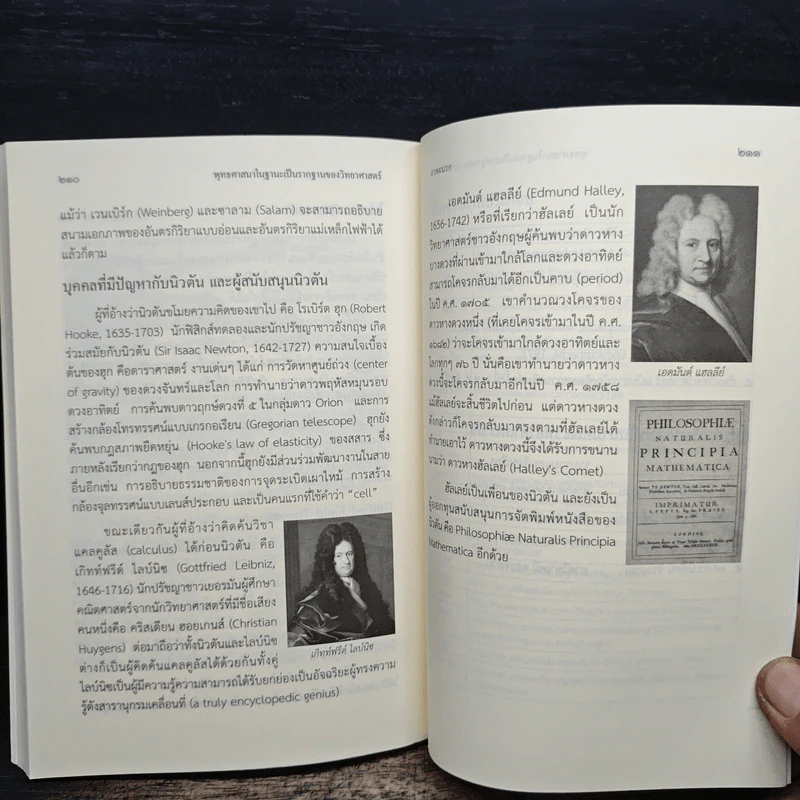 ๒๑๐
พุทธศาสนาในฐานะเป็นรากฐานของวิทยาศาสตร์
แม้ว่า เวนเบิร์ก (Weinberg) และซาลาม (Salam) จะสามารถอธิบาย
สนามเอกภาพของอันตรกิริยาแบบอ่อนและอันตรกิริยาแม่เหล็กไฟฟ้าได้
แล้วก็ตาม
บุคคลที่มีปัญหากับนิวตัน และผู้สนับสนุนนิวตัน
ผู้ที่อ้างว่านิวตันขโมยความคิดของเขาไป คือ โรเบิร์ต ฮุก (Robert
Hooke, 1635-1703) นักฟิสิกส์ทดลองและนักปรัชญาชาวอังกฤษ เกิด
ร่วมสมัยกับนิวตัน (Sir Isaac Newton, 1642-1727) ความสนใจเบื้อง
ต้นของฮุก คือดาราศาสตร์ งานเด่นๆ ได้แก่ การวัดหาศูนย์ถ่วง (center
of gravity) ของดวงจันทร์และโลก การทำนายว่าดาวพฤหัสหมุนรอบ
ดวงอาทิตย์ การค้นพบดาวฤกษ์ดวงที่ ๕ ในกลุ่มดาว Orion และการ
สร้างกล้องโทรทรรศน์แบบเกรกอเรียน (Gregorian telescope) ฮุกยัง
ค้นพบกฎสภาพยืดหยุ่น (Hooke's law of elasticity) ของสสาร ซึ่ง
ภายหลังเรียกว่ากฎของฮุก นอกจากนี้ฮุกยังมีส่วนร่วมพัฒนางานในสาย
อื่นอีกเช่น การอธิบายธรรมชาติของการจุดระเบิดเผาไหม้ การสร้าง
กล้องจุลทรรศน์แบบเลนส์ประกอบ และเป็นคนแรกที่ใช้คำว่า “cell”
ขณะเดียวกันผู้ที่อ้างว่าคิดค้นวิชา
แคลคูลัส (calculus) ได้ก่อนนิวตัน คือ
เกิทท์ฟรีด์ ไลบ์นิซ (Gottfried Leibniz,
1646-1716) นักปรัชญาชาวเยอรมันผู้ศึกษา
คณิตศาสตร์จากนักวิทยาศาสตร์ที่มีชื่อเสียง
คนหนึ่งคือ คริสเตียน ฮอยเกนส์ (Christian
Huygens) ต่อมาถือว่าทั้งนิวตันและไลบ์นิซ
ต่างก็เป็นผู้คิดค้นแคลคูลัสได้ด้วยกันทั้งคู่
ไลบ์นิซเป็นผู้มีความรู้ความสามารถได้รับยกย่องเป็นอัจฉริยะผู้ทรงความ
รู้ดังสารานุกรมเคลื่อนที่ (a truly encyclopedic genius)
เกิทท์ฟรีด์ ไลบ์นิซ
ภาคผนวก
๒๑๑
เอดมันด์ แฮลลีย์ (Edmund Halley,
1656-1742) หรือที่เรียกว่าฮัลเลย์ เป็นนัก
วิทยาศาสตร์ชาวอังกฤษผู้ค้นพบว่าดาวหาง
บางดวงที่ผ่านเข้ามาใกล้โลกและดวงอาทิตย์
สามารถโคจรกลับมาได้อีกเป็นคาบ (period)
ในปี ค.ศ. ๑๗๐๕ เขาคำนวณวงโคจรของ
ดาวหางดวงหนึ่ง (ที่เคยโคจรเข้ามาในปี ค.ศ.
๑๖๘๒) ว่าจะโคจรเข้ามาใกล้ดวงอาทิตย์และ
โลกทุกๆ ๗๖ ปี นั่นคือเขาทำนายว่าดาวหาง
ดวงนี้จะโคจรกลับมาอีกในปี ค.ศ. ๑๗๕๘
แม้ฮัลเลย์จะสิ้นชีวิตไปก่อน แต่ดาวหางดวง
ดังกล่าวก็โคจรกลับมาตรงตามที่ฮัลเลย์ได้
ทำนายเอาไว้ ดาวหางดวงนี้จึงได้รับการขนาน
นามว่า ดาวหางฮัลเลย์ (Halley's Comet)
ฮัลเลย์เป็นเพื่อนของนิวตัน และยังเป็น
ผู้ออกทุนสนับสนุนการจัดพิมพ์หนังสือของ
นิวตัน คือ Philosophiæ Naturalis Principia
Mathematica อีกด้วย
เอดมันด์ แฮลลีย์
PHILOSOPHIÆ
NATURALIS
PRINCIPIA
MATHEMATICA
IMPRIMATUR
S. PEPYS, Reg. Soc. PRÆSES
LONDINI